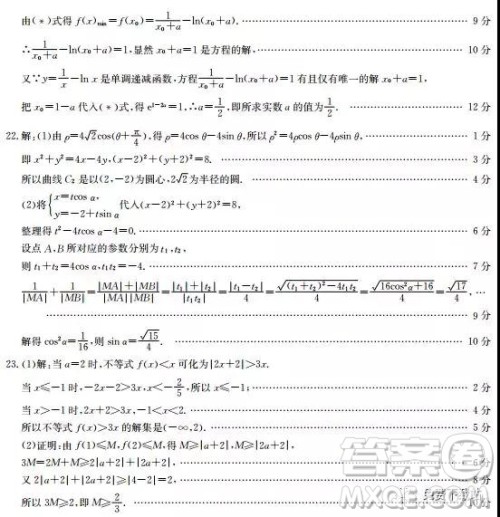 由(*)式得 f(x)min=f(x₀)=1/(x₀+a)-ln(x₀+a). 9分
∴1/(x₀+a)-ln(x₀+a)=1,显然 x₀+a=1 是方程的解, 10分
又∵y=1/x-ln x 是单调递减函数,方程1/(x₀+a)-ln(x₀+a)=1 有且仅有唯一的解 x₀+a=1,
把 x₀=1-a 代入(*)式,得 e^(1-2a)=1,∴a=1/2,即所求实数 a 的值为1/2. 12分
22.解:(1)由 ρ=4√2cos(θ+π/4),得 ρ=4cos θ-4sin θ,所以 ρ²=4ρcos θ-4ρsin θ, 1分
即 x²+y²=4x-4y,(x-2)²+(y+2)²=8. 3分
所以曲线 C₂ 是以(2,-2)为圆心,2√2为半径的圆.
(2)将{x=tcos α, y=-2+tsin α 代入(x-2)²+(y+2)²=8,
整理得 t²-4tcos α-4=0. 6分
设点 A,B 所对应的参数分别为 t₁,t₂,
则 t₁+t₂=4cos α,t₁t₂=-4. 7分
1/|MA|+1/|MB|=(|MA|+|MB|)/(|MA||MB|)=(|t₁|+|t₂|)/(|t₁||t₂|)=|t₁-t₂|/4=√((t₁+t₂)²-4t₁t₂)/4=√(16cos²α+16)/4=√17/4, …
9分
解得 cos²α=1/16,则 sin α=√15/4. 10分
23.(1)解:当 a=2 时,不等式 f(x)<x 可化为|2x+2|>3x.
当 x≤-1 时,-2x-2>3x,x<-2/5,所以 x≤-1. 2分
当 x>-1 时,2x+2>3x,-1<x<2. 4分
所以不等式 f(x)>3x 的解集是(-∞,2). 5分
(2)证明:由 f(1)≤M,f(2)≤M,得 M≥|a+2|,M≥|2a+2|,
3M=2M+M≥2|a+2|+|2a+2|, 6分
又 2|a+2|+|2a+2|≥|4-2|=2, 8分
所以 3M≥2,即 M≥2/3. 10分
答案圈